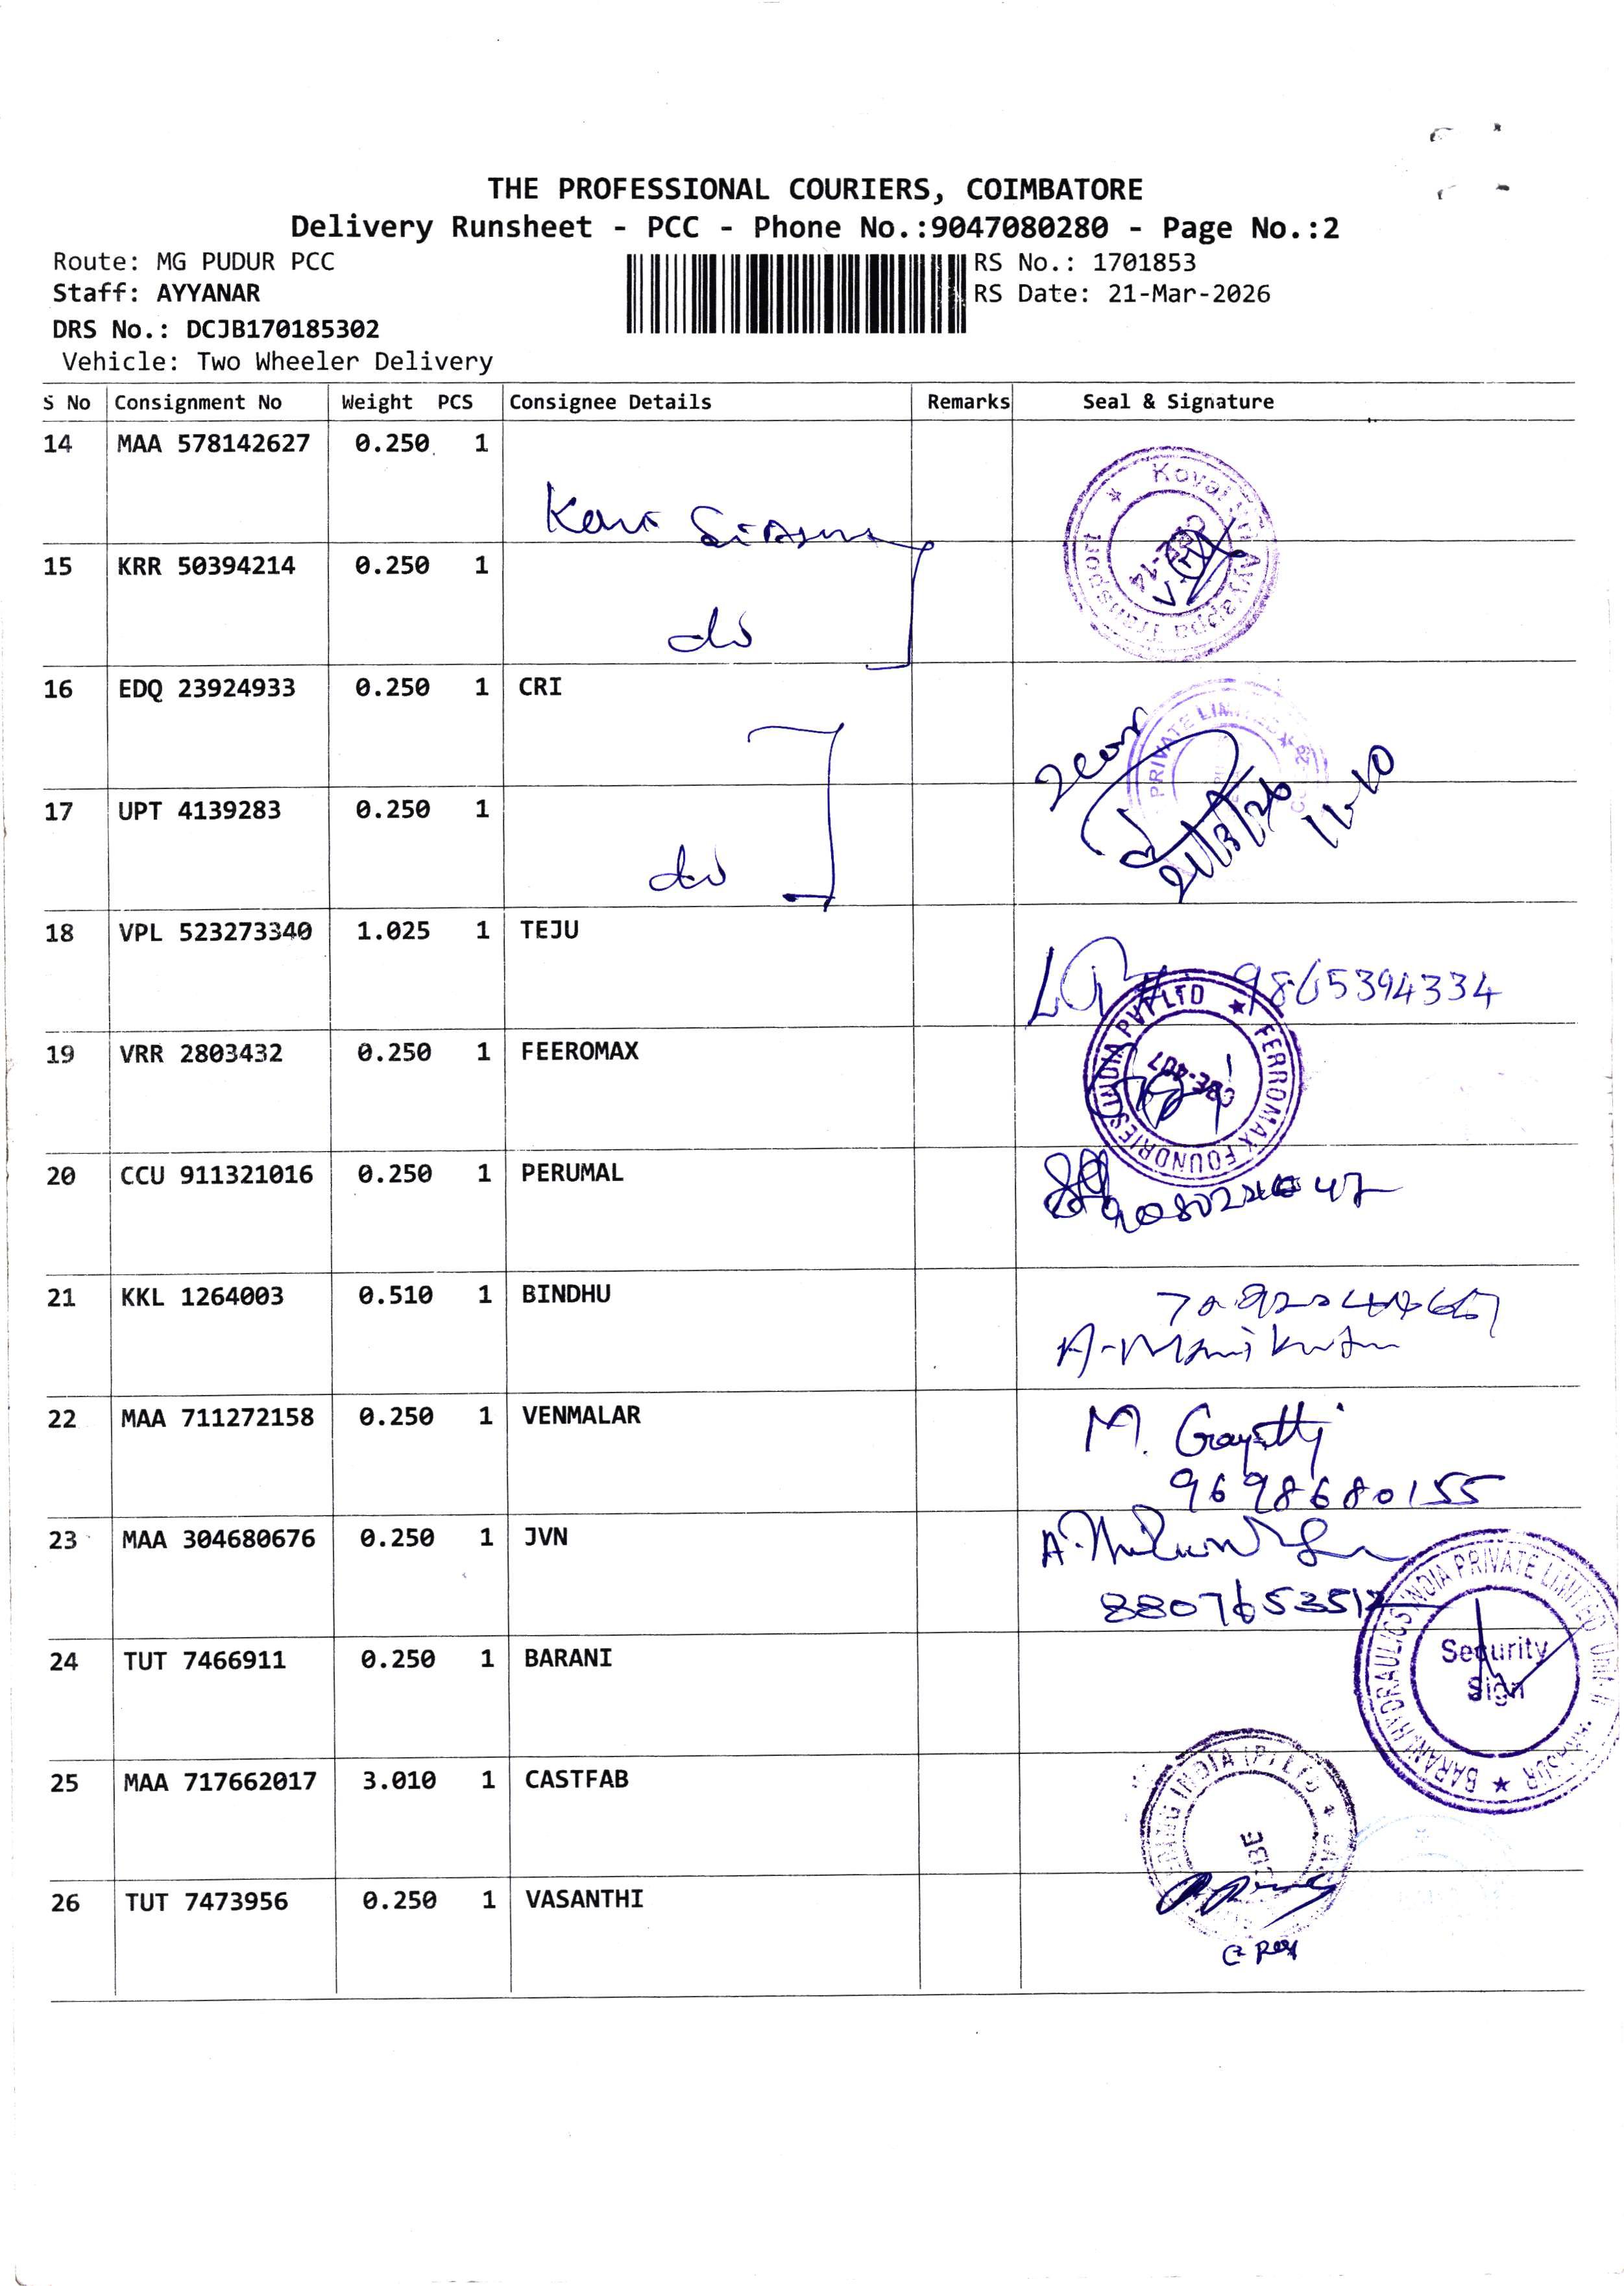 THE PROFESSIONAL COURIERS, COIMBATORE
Delivery Runsheet - PCC - Phone No.:9047080280 - Page No.:2
Route: MG PUDUR PCC
RS No.: 1701853
Staff: AYYANAR
RS Date: 21-Mar-2026
DRS No.: DCJB170185302
Vehicle: Two Wheeler Delivery
S No Consignment No Weight PCS Consignee Details Remarks Seal & Signature
14 MAA 578142627 0.250 1
Kovai Sri Ayyappa Transport
15 KRR 50394214 0.250 1
do
16 EDQ 23924933 0.250 1 CRI
PRIVATE LIMITED
21/3/26
17 UPT 4139283 0.250 1
do
18 VPL 523273340 1.025 1 TEJU
9865394334
19 VRR 2803432 0.250 1 FEEROMAX
FERROMAX FOUNDRIES INDIA PVT LTD
CBE-407
20 CCU 911321016 0.250 1 PERUMAL
21 KKL 1264003 0.510 1 BINDHU
22 MAA 711272158 0.250 1 VENMALAR
M. Gayathri
9698680155
23 MAA 304680676 0.250 1 JVN
24 TUT 7466911 0.250 1 BARANI
BARANI HYDRAULICS INDIA PRIVATE LIMITED UNIT II
Security
Sign
25 MAA 717662017 3.010 1 CASTFAB
INDIA (P) LTD
CBE
26 TUT 7473956 0.250 1 VASANTHI